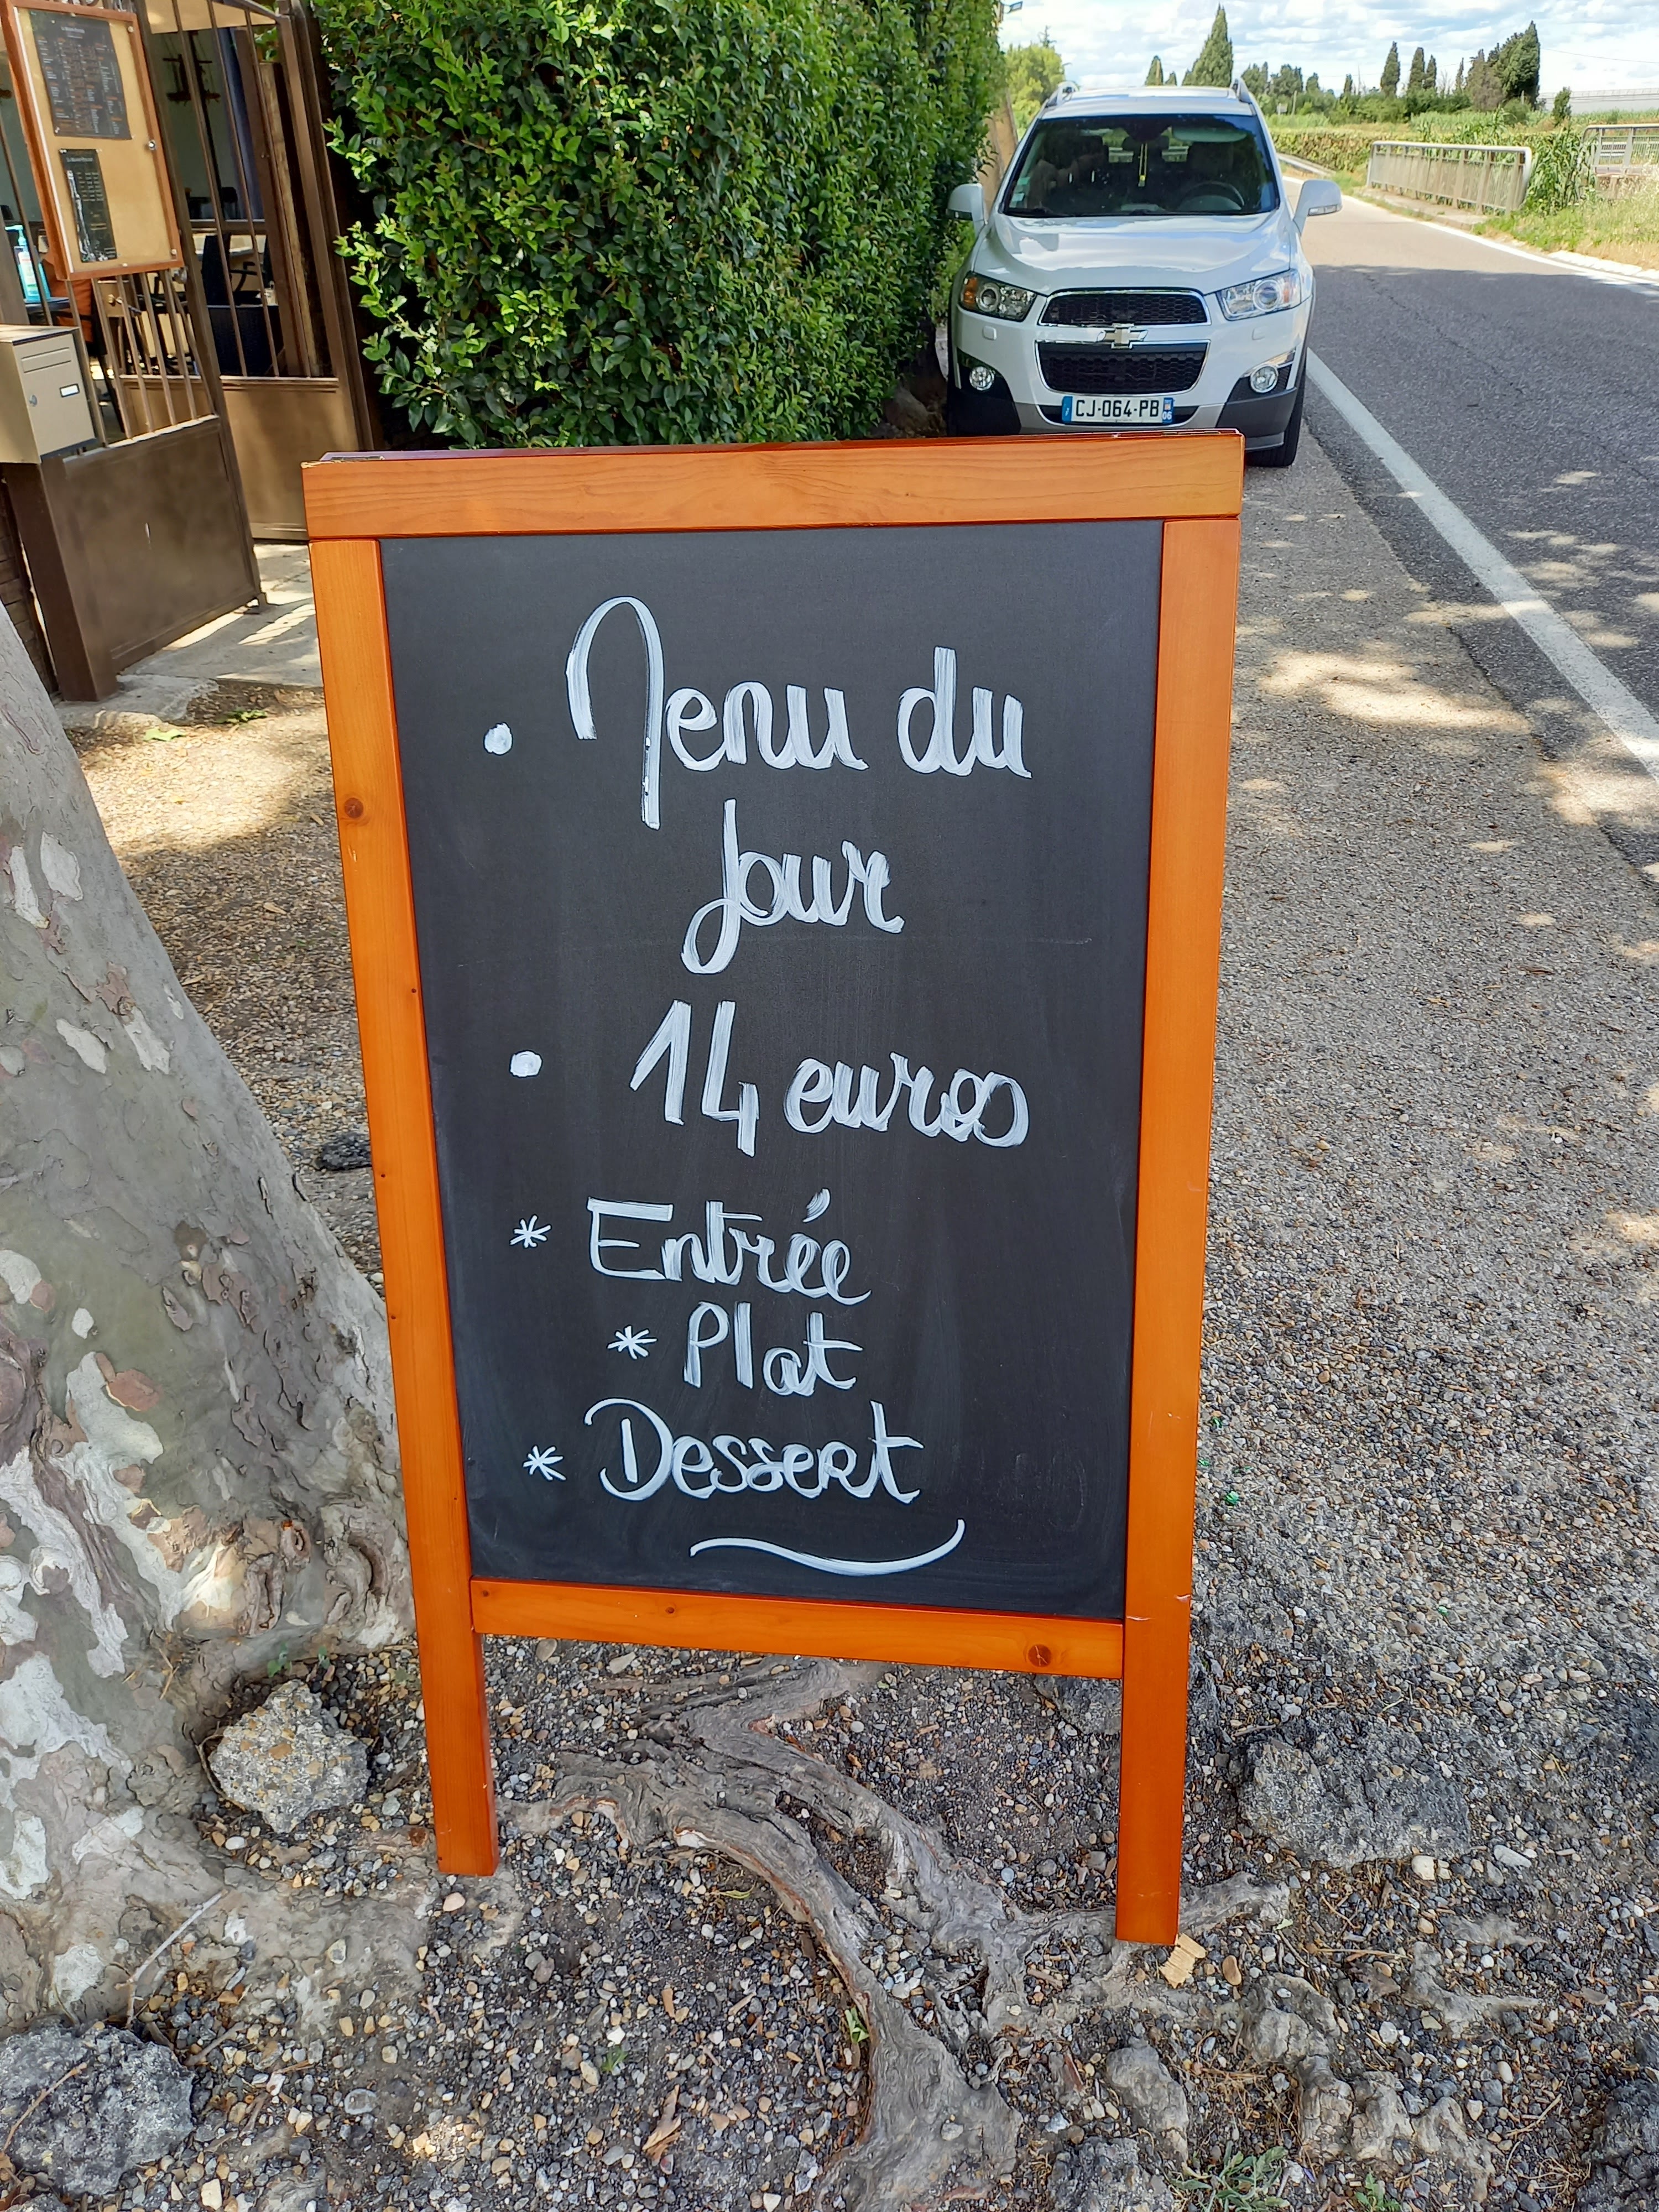 CJ-064-PB
06
• Menu du
jour
• 14 euros
* Entrée
* Plat
* Dessert